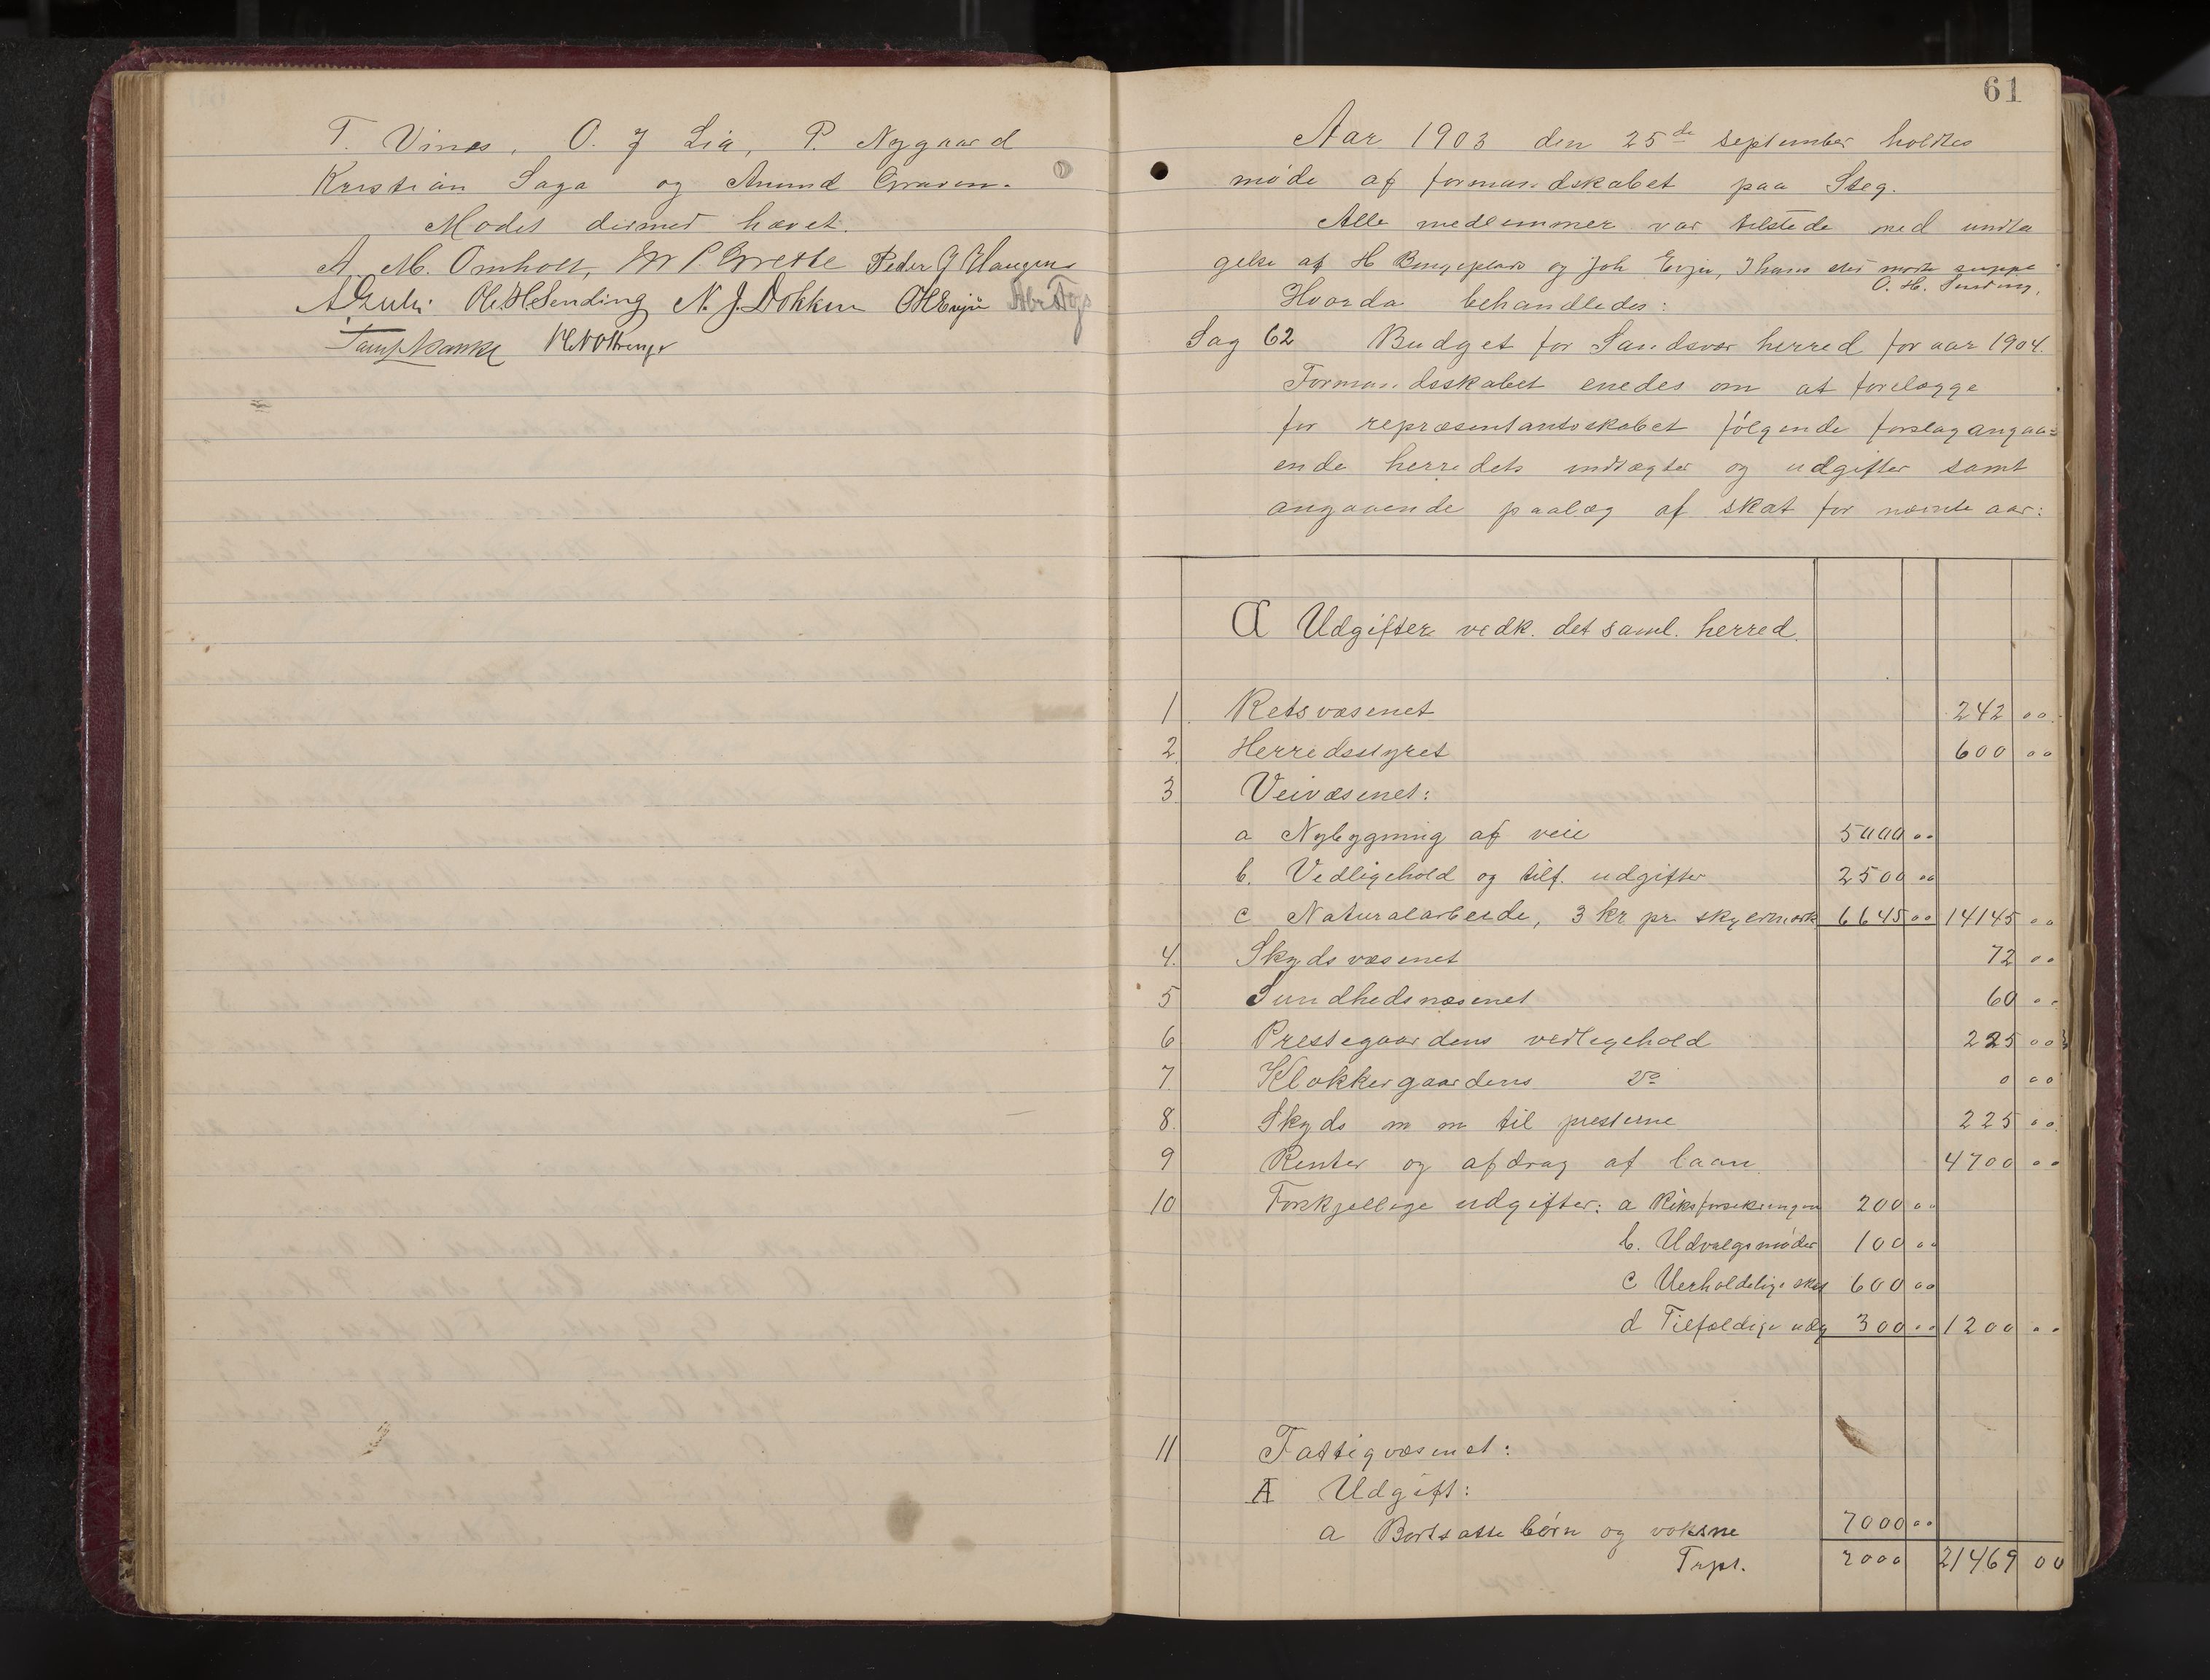 T. Vinæs, O. J Lia, P. Nygaard
Kristian Saga og Anund Graven.
Mødet dermed hævet.
A. M. Omholt, P. Grette Peder J Haugen
Ole H. Sending N. J. Dokken O H Evju
61
Aar 1903 den 25de september holdtes
møde af formandskabet paa Steg.
Alle medlemmer var tilstede med undta
gelse af H og Joh Evju, I hans sted mødte suppl
O. H. Sending.
Hvorda behandledes:
Sag 62 Budget for Sandsvær herred for aar 1904.
Formandsskabet enedes om at forelægge
for repræsentantsskabet følgende forslag angaa=
ende herredets indtægter og udgifter samt
angaaende paalæg af skat for nævnte aar:
A Udgifter vedk. det saml. herred.
1. Retsvæsenet 242 00
2. Herredsstyret 600 00
3. Veivæsenet:
a Nybygning af veie 5000 00
b. Vedligehold og tilf. udgifter 2500 00
c Naturalarbeide, 3 kr pr skyldmark 6645 00 14145 00
4. Skydsvæsenet 72 00
5 Sundhedsvæsenet 60 00
6 Prestegaardens vedligehold 225 00
7. Klokkergaardens do 0 00
8. Skyds m m til presterne 225 00
9 Renter og afdrag af laan 4700 00
10 Forskjellige udgifter: a Riksforsikringen 200 00
b. Udvalgsmøder 100 00
c Uerholdelige skat 600 00
d Tilfældige udg 300 00 1200 00
11 Fattigvæsenet:
A Udgift:
a Bortsatte børn og voksne 7000 00
Trpt. 7000 21469 00